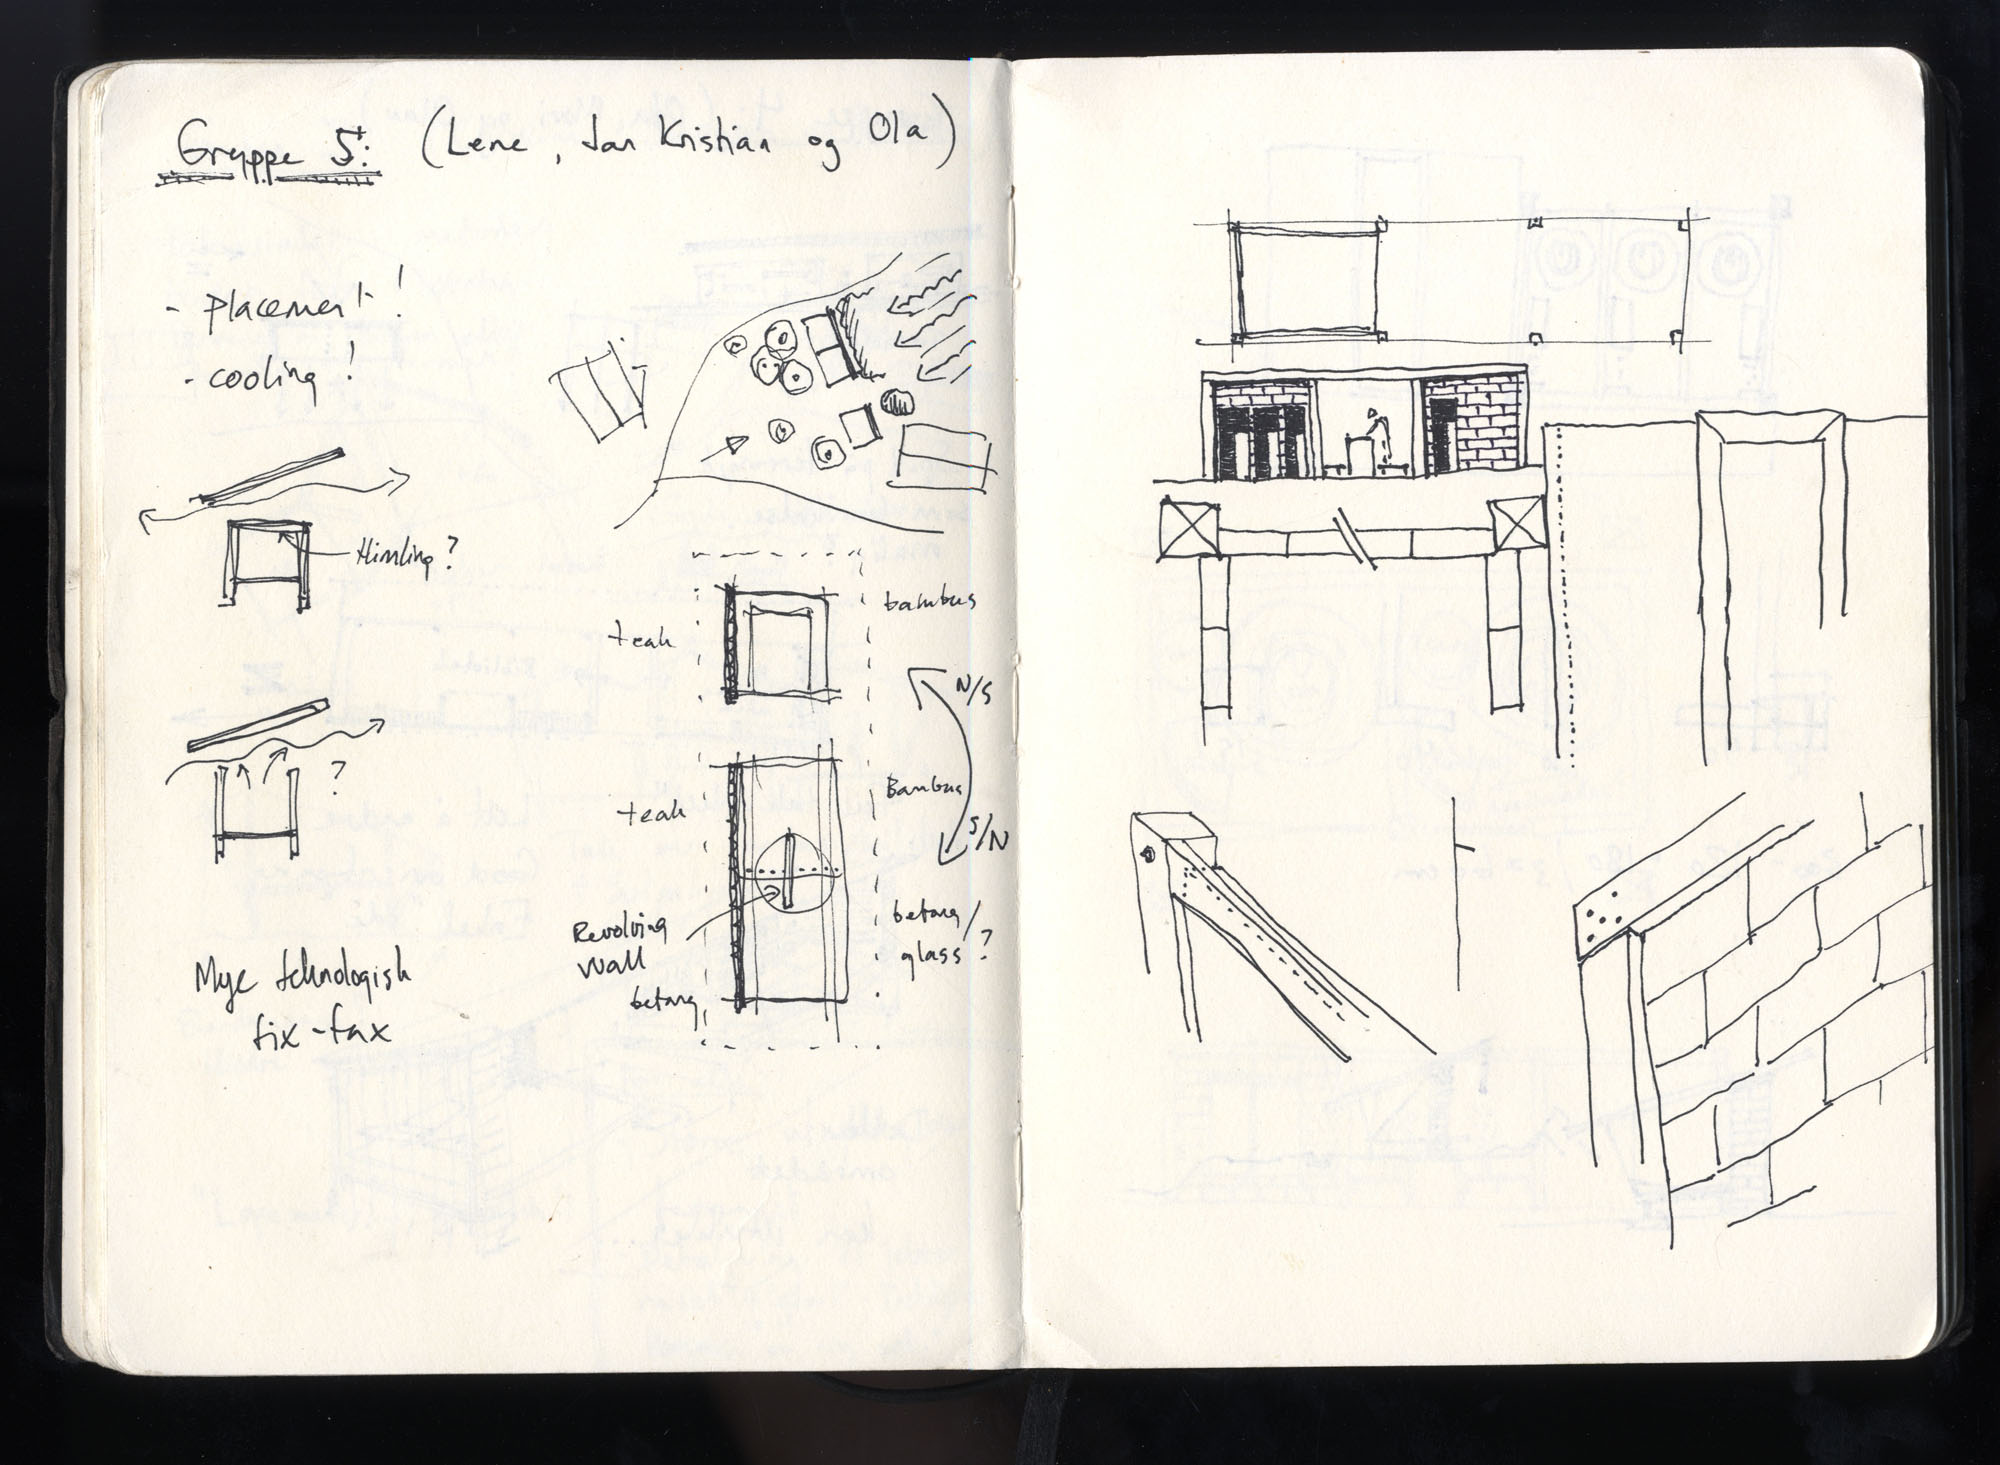 Gruppe 5: (Lene, Jan Kristian og Ola)
- placement!
- cooling!
Himling?
?
Mye teknologisk
fix-fax
teak
bambus
N/S
teak
Bambus
S/N
Revolving
wall
betong
betong/
glass?